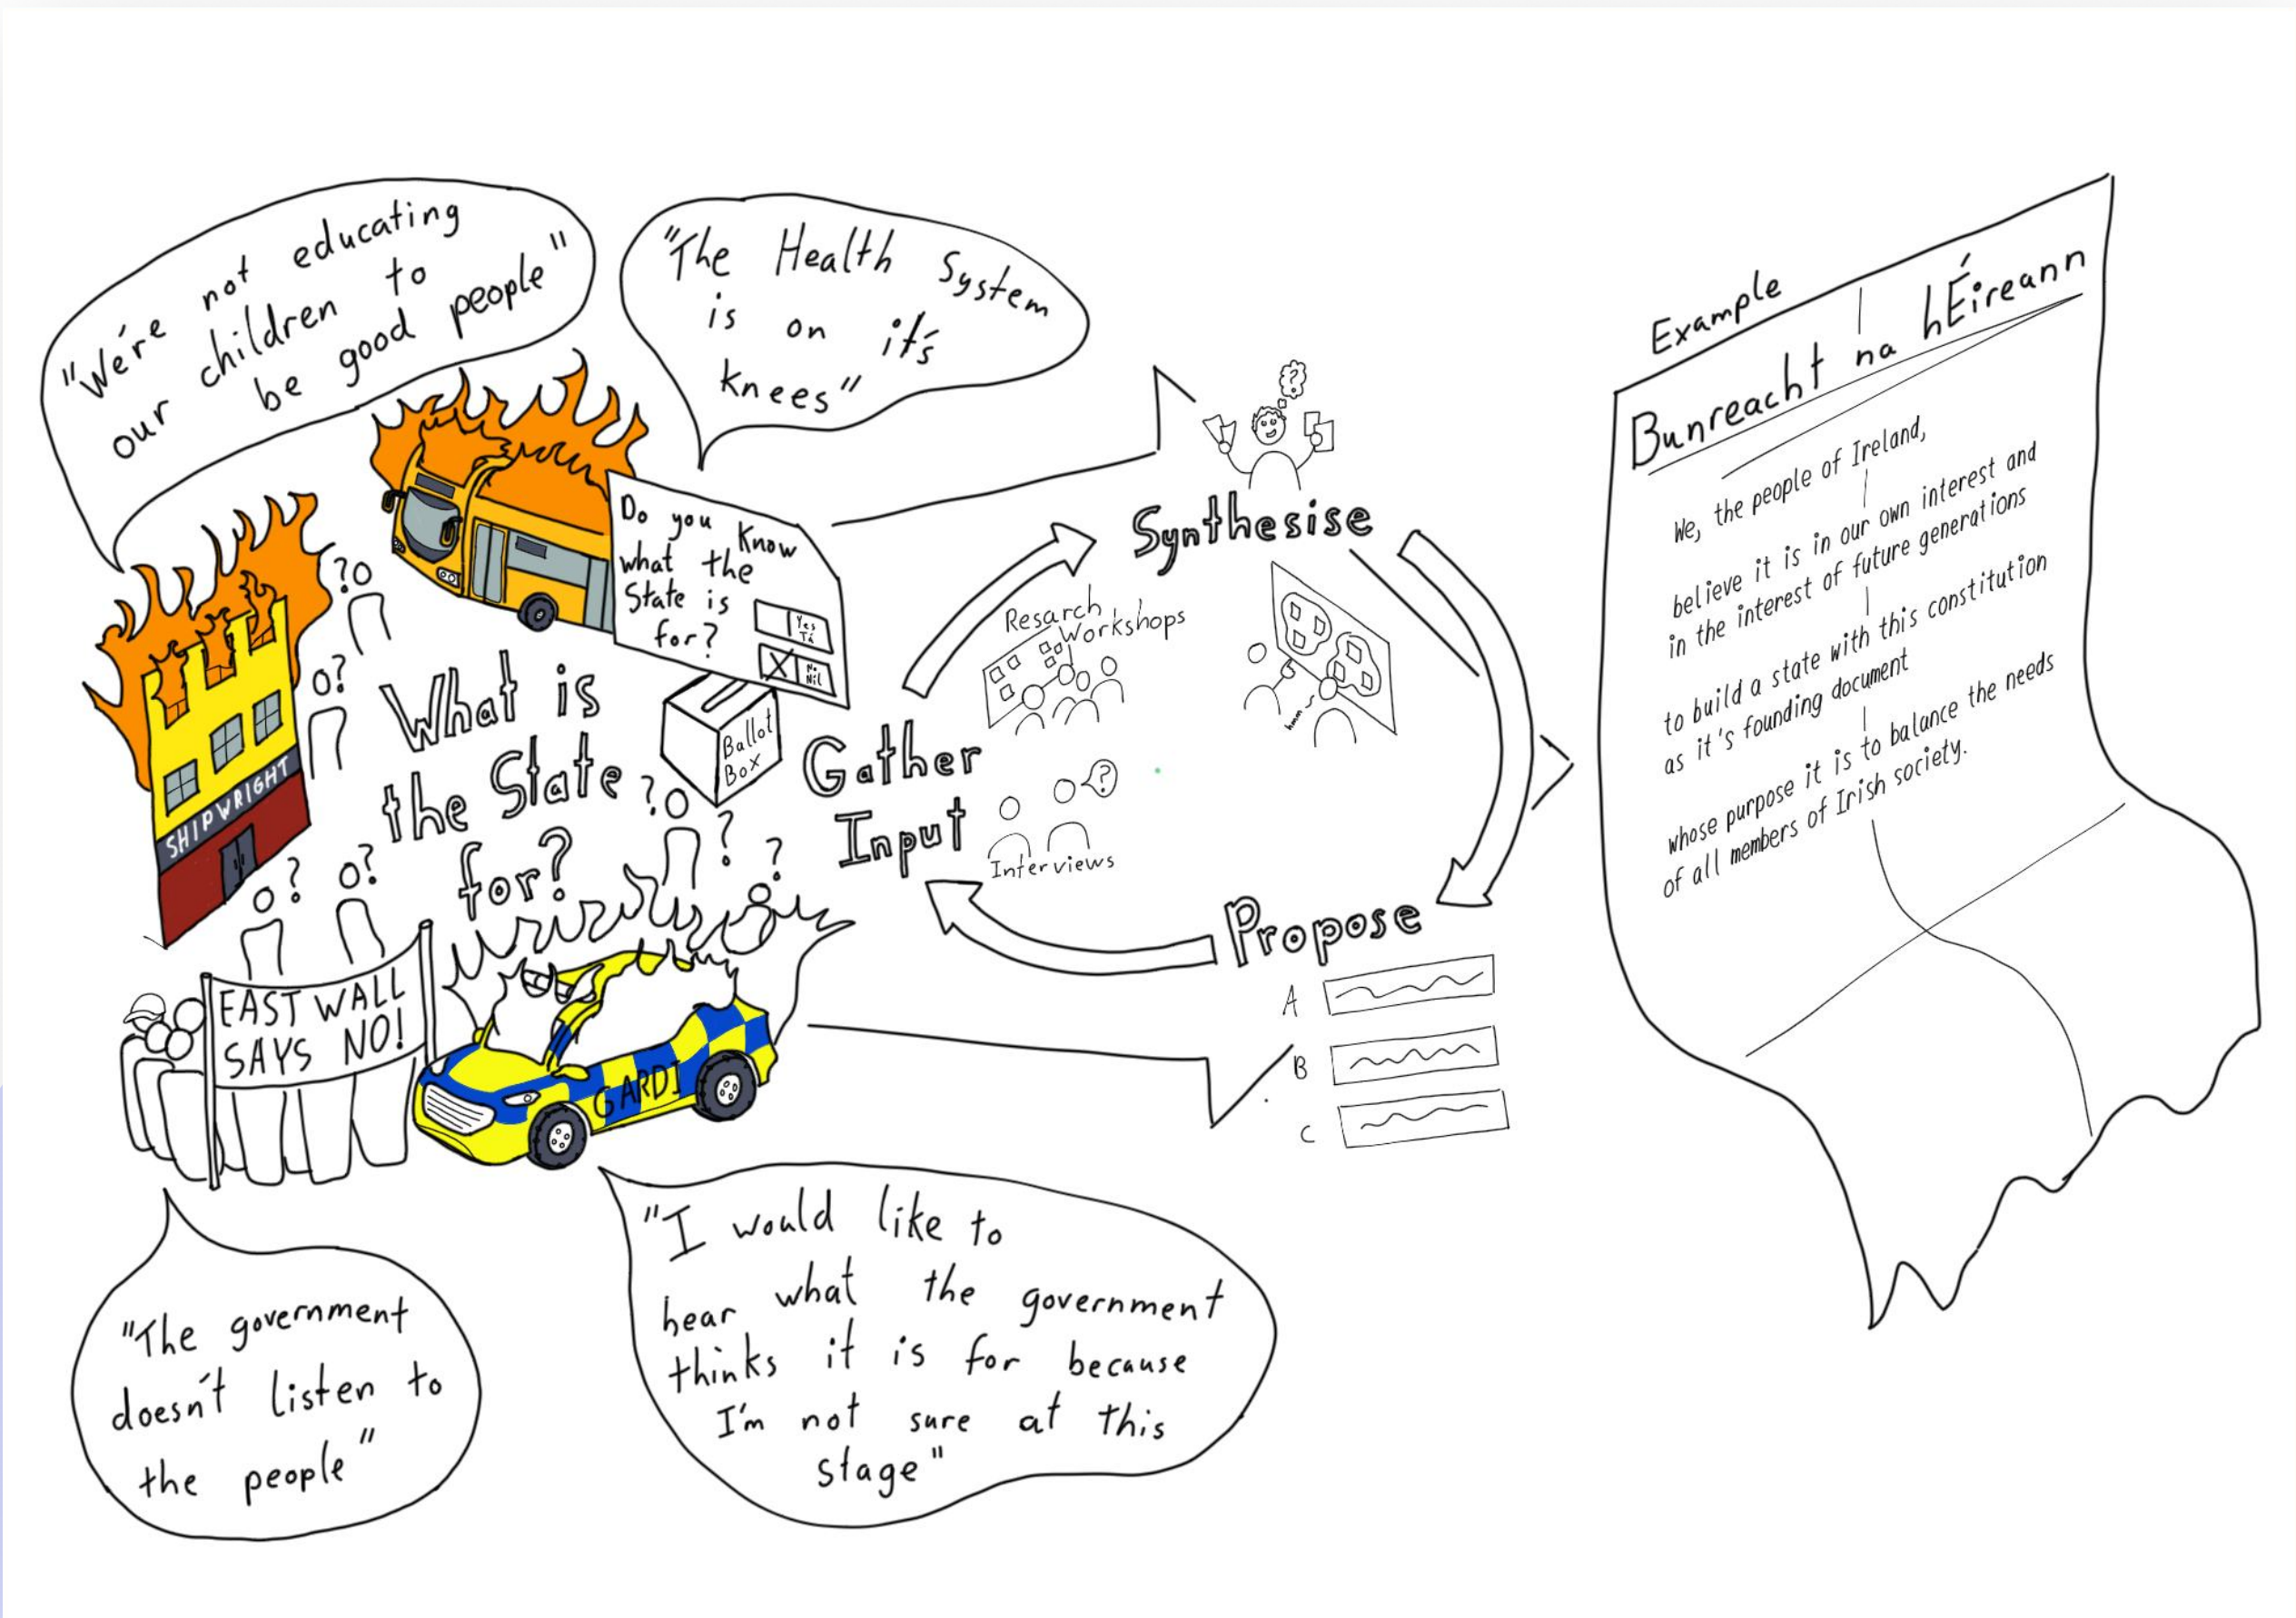 "We're not educating
our children to
be good people"
"The Health System
is on it's
knees"
Do you know
what the
State is
for?
Yes
Tá
No
Níl
Ballot
Box
SHIPWRIGHT
What is
the State
for?
?
?
?
?
?
?
?
EAST WALL
SAYS NO!
GARDI
"The government
doesn't listen to
the people"
"I would like to
hear what the government
thinks it is for because
I'm not sure at this
stage"
Gather
Input
Resarch
Workshops
?
Interviews
?
Synthesise
hmm
Propose
A
B
C
Example
Bunreacht na hÉireann
We, the people of Ireland,
believe it is in our own interest and
in the interest of future generations
to build a state with this constitution
as it's founding document
whose purpose it is to balance the needs
of all members of Irish society.